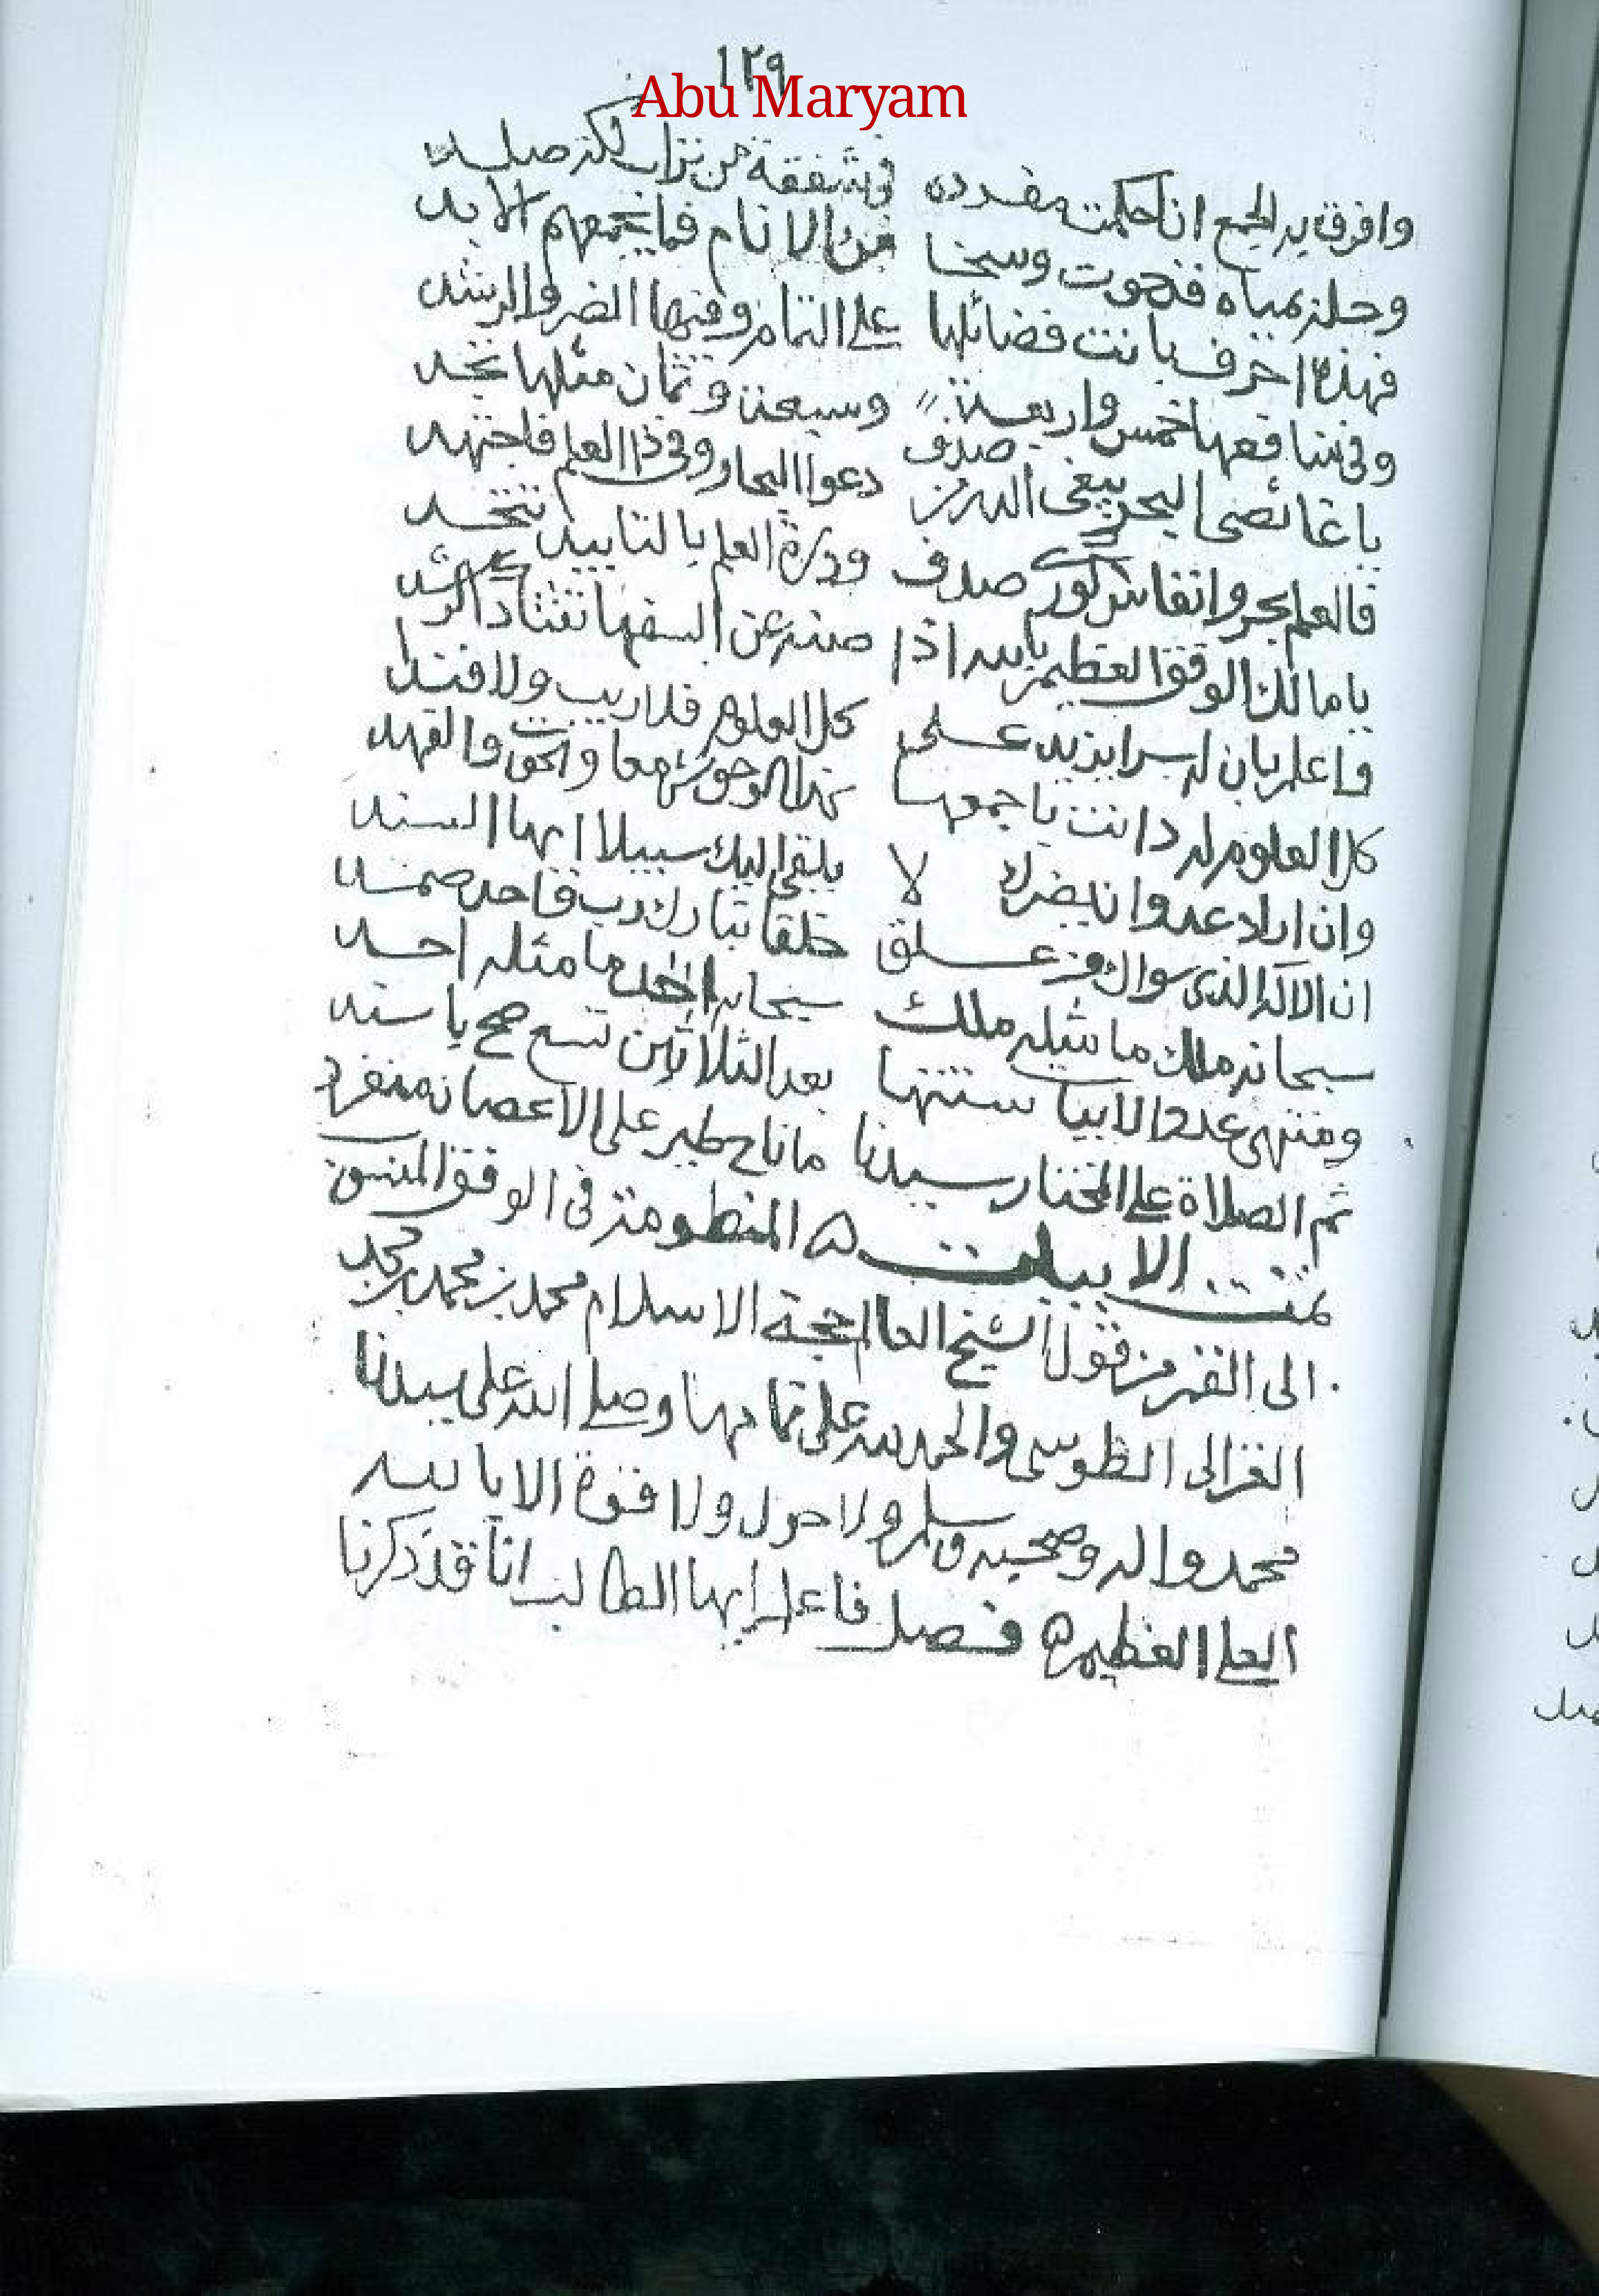 ١٢٩
Abu Maryam
وافرق به الجمع انا حكمت مفرده في شفقة من تراب صلد
وحلز بمياه فتحوت وسخا من الانام فما يجمعهم الابد
فهذه احرف بانت فضائلها على التمام وفيها الضر والرشد
وفي منافعها خمس واربعة وسبعة وثمان مثلها تجد
يا غائصى البحر يبغى الدر من صدف دعوا البحار وفي ذا العلم فاجتهد
فالعلم بحر وانفاس صدف ودرة العلم بالتاييد تتخد
يا مالك الوفق العظيم بالله اذا صنته عن السفها
واعلم بان له سرا يزيد على كل العلوم فلا ريب ولا فند
كل العلوم له دانت باجمعها
وان اراد عدوا ان يضرك لا يلقى اليك سبيلا ايها السند
ان الاله الذى سواك من علق خلقا تبارك رب واحد صمد
سبحانه ملك ما مثله ملك سبحانه ما مثله احد
ومنتهى عدد الابيات ستتها بعد الثلاثين تسع صح يا سند
ثم الصلاة على المختار سيدنا ما ناح طير على الاعصان منفرد
تمت الابيات المنظومة في الوفق المنسوب
الى القمر من قول الشيخ العالم حجة الاسلام محمد بن محمد بن محمد
الغزالى الطوسى والحمد لله على تمامها وصلى الله على سيدنا
محمد واله وصحبه وسلم ولا حول ولا قوة الا بالله
العلى العظيم ه فصل فاعلم ايها الطالب انا قد ذكرنا